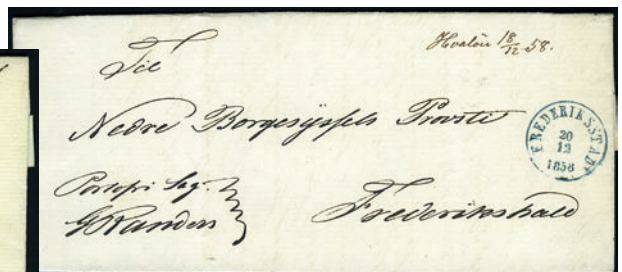 Hvalöer 18/12 58.
Til
Nedre Borgesyssels Provsti
FREDERIKSSTAD
20
12
1858
Portofri Sag.
GRanders
Frederikshald